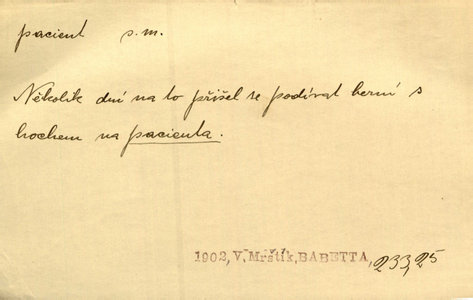 pacient s. m.
Několik dní na to přišel se podívat berní s
hochem na pacienta.
1902, V. Mrštík, BABETTA, 233, 25